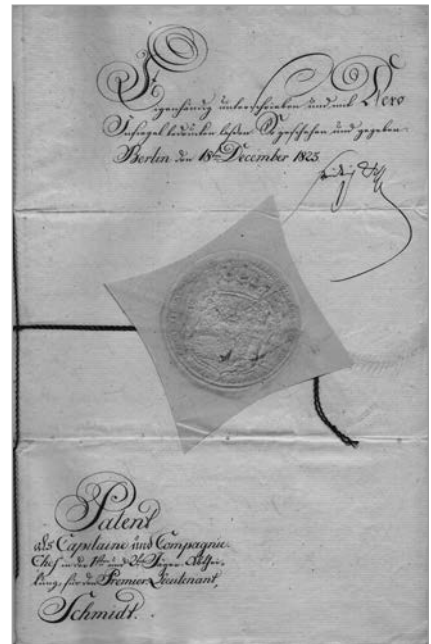 Eigenhändig unterschrieben und mit Dero
Insiegel bedrucken laßen. So geschehen und gegeben
Berlin den 18ten December 1825
Patent
als Capitaine und Compagnie-
Chef in der 1ten und 2ten Jäger-Abthei-
lung, für den Premier-Lieutenant,
Schmidt.